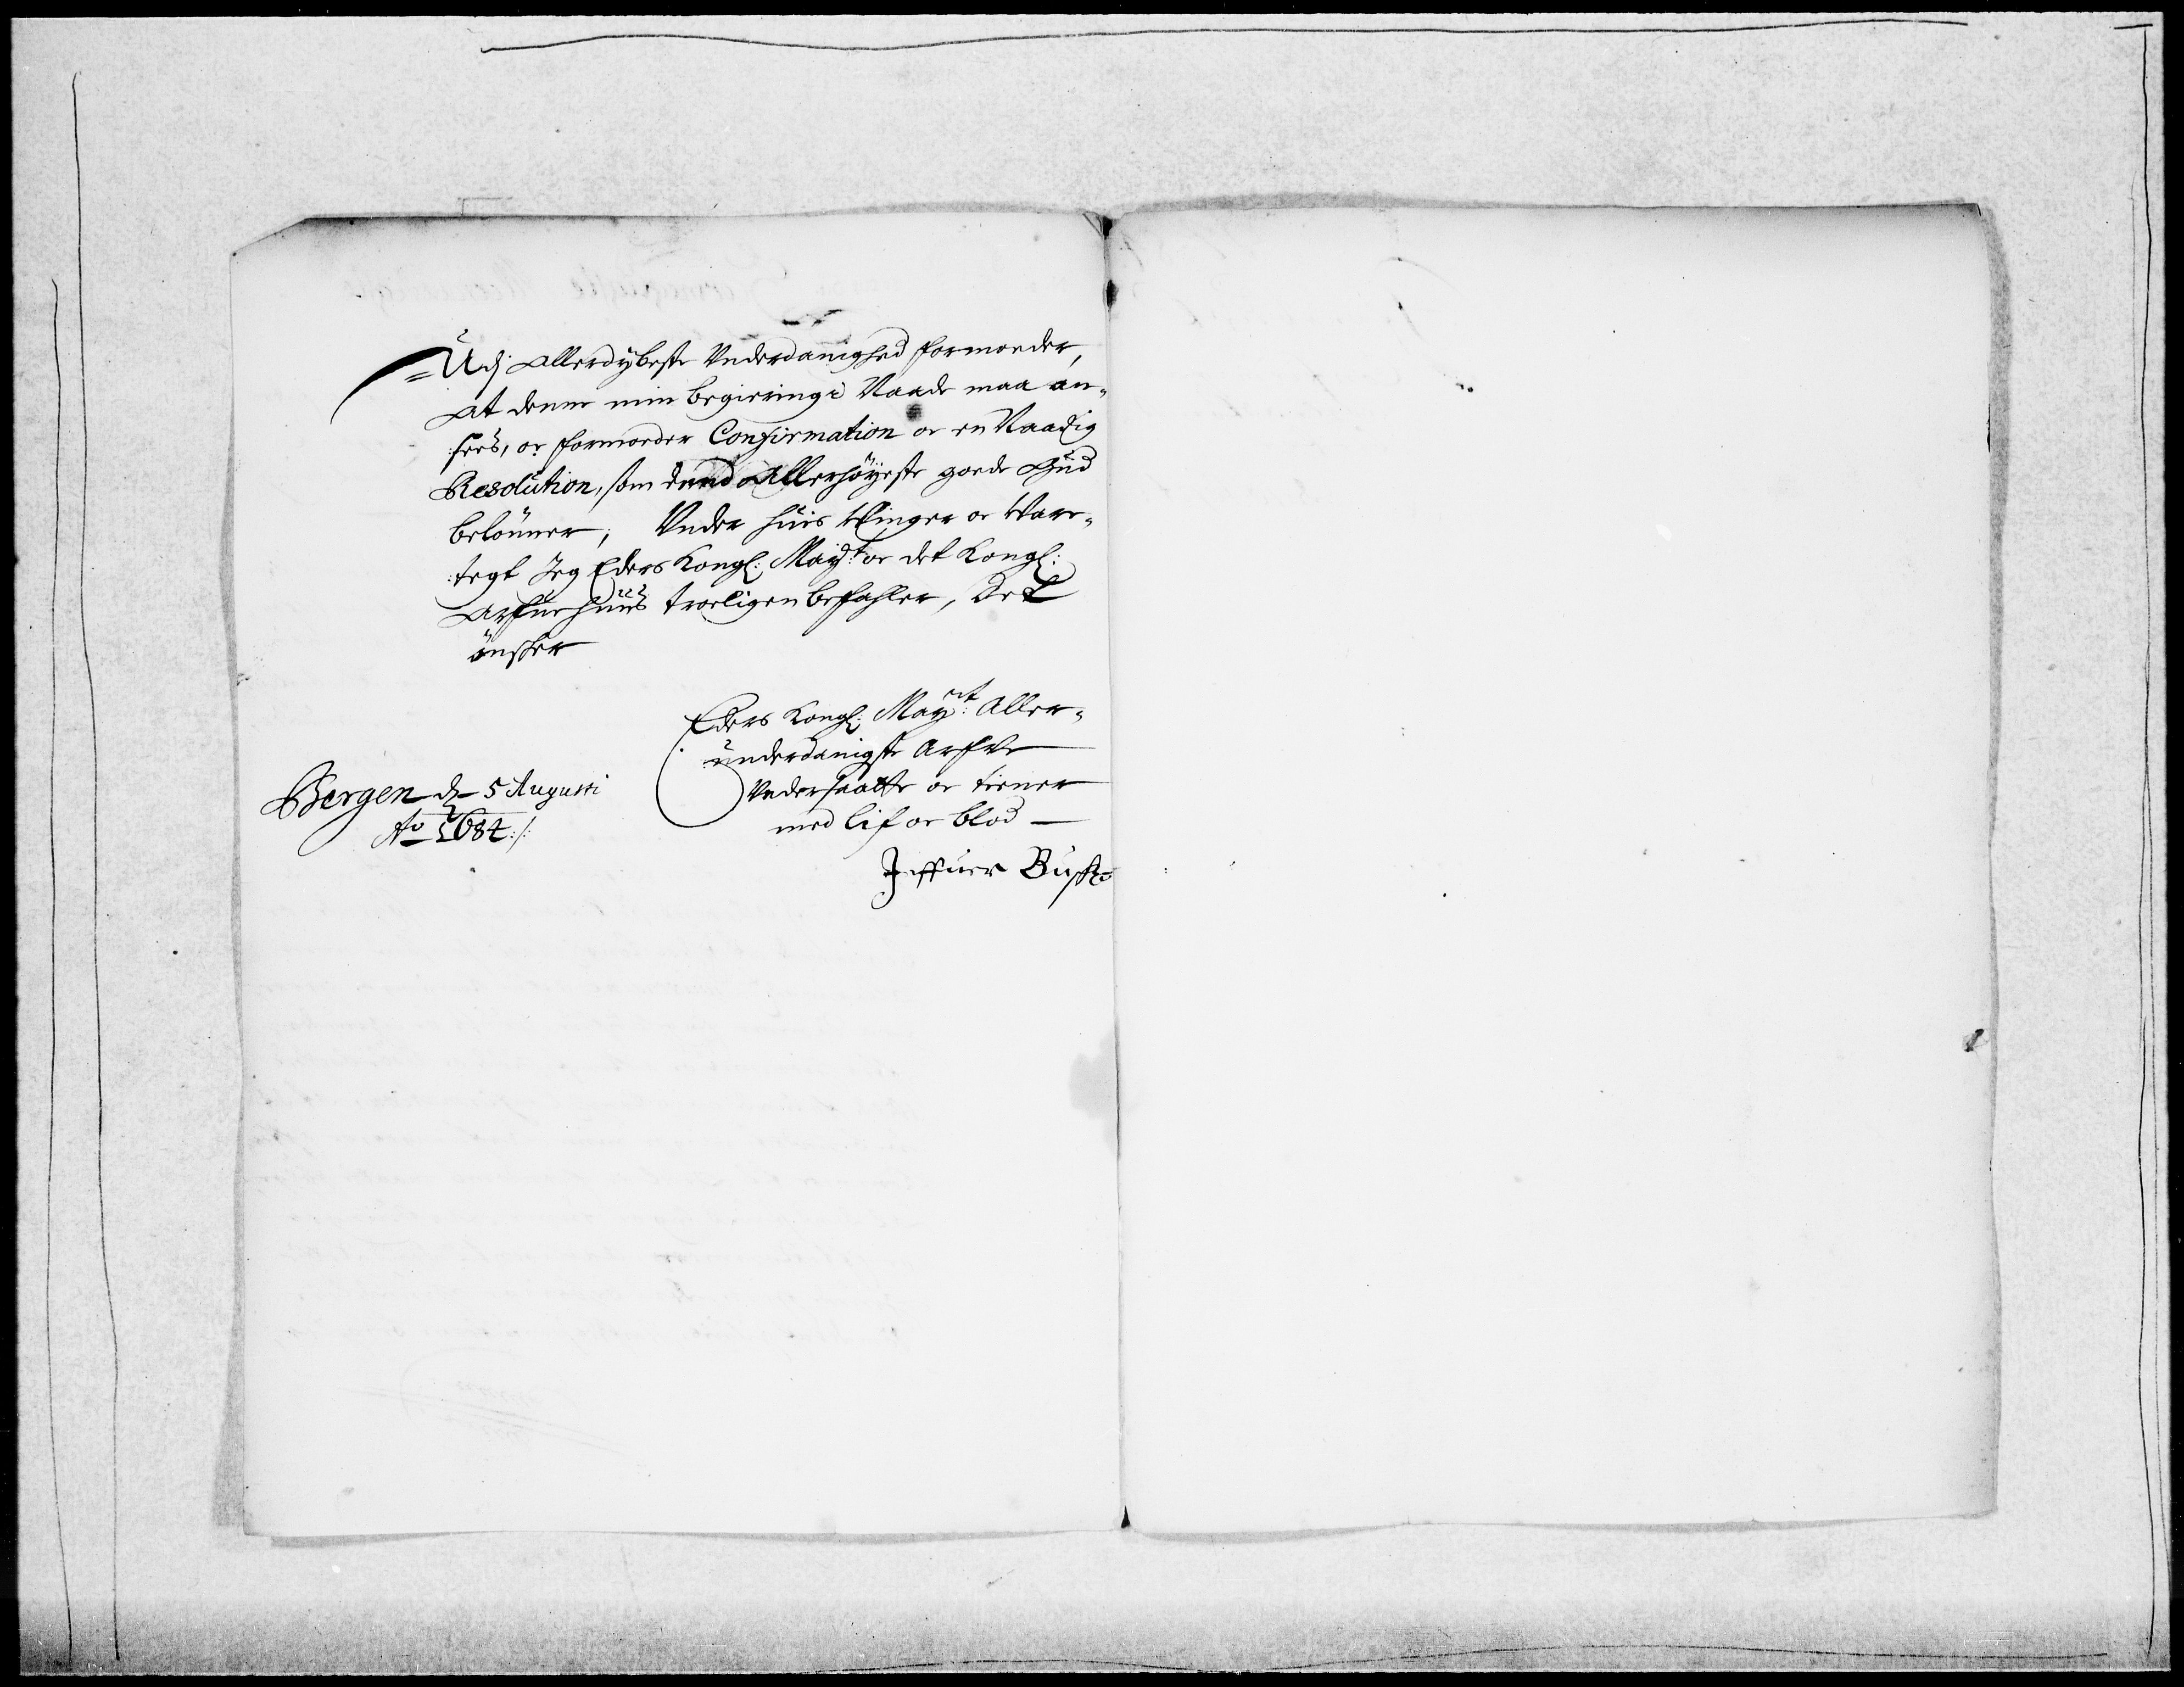 Udj allerdybeste Underdanighed formoeder,
at denne min begiering i Naade maa an-
sees, oc formoeder Confirmation oc en Naadig
Resolution, som dend Allerhöyeste goede Gud
belönner; Under huis Winger oc Ware-
tegt Jeg Eders Kongl: Mayt: oc det Kongl:
Arfue huus troeligen befahler, Det
önsker
Eders Kongl: Mayst: Aller-
underdanigste Arfve
Undersaatte oc tiener
med lif oc blod
Bergen d 5 Augusti
Ao 1684 ./.
Buske